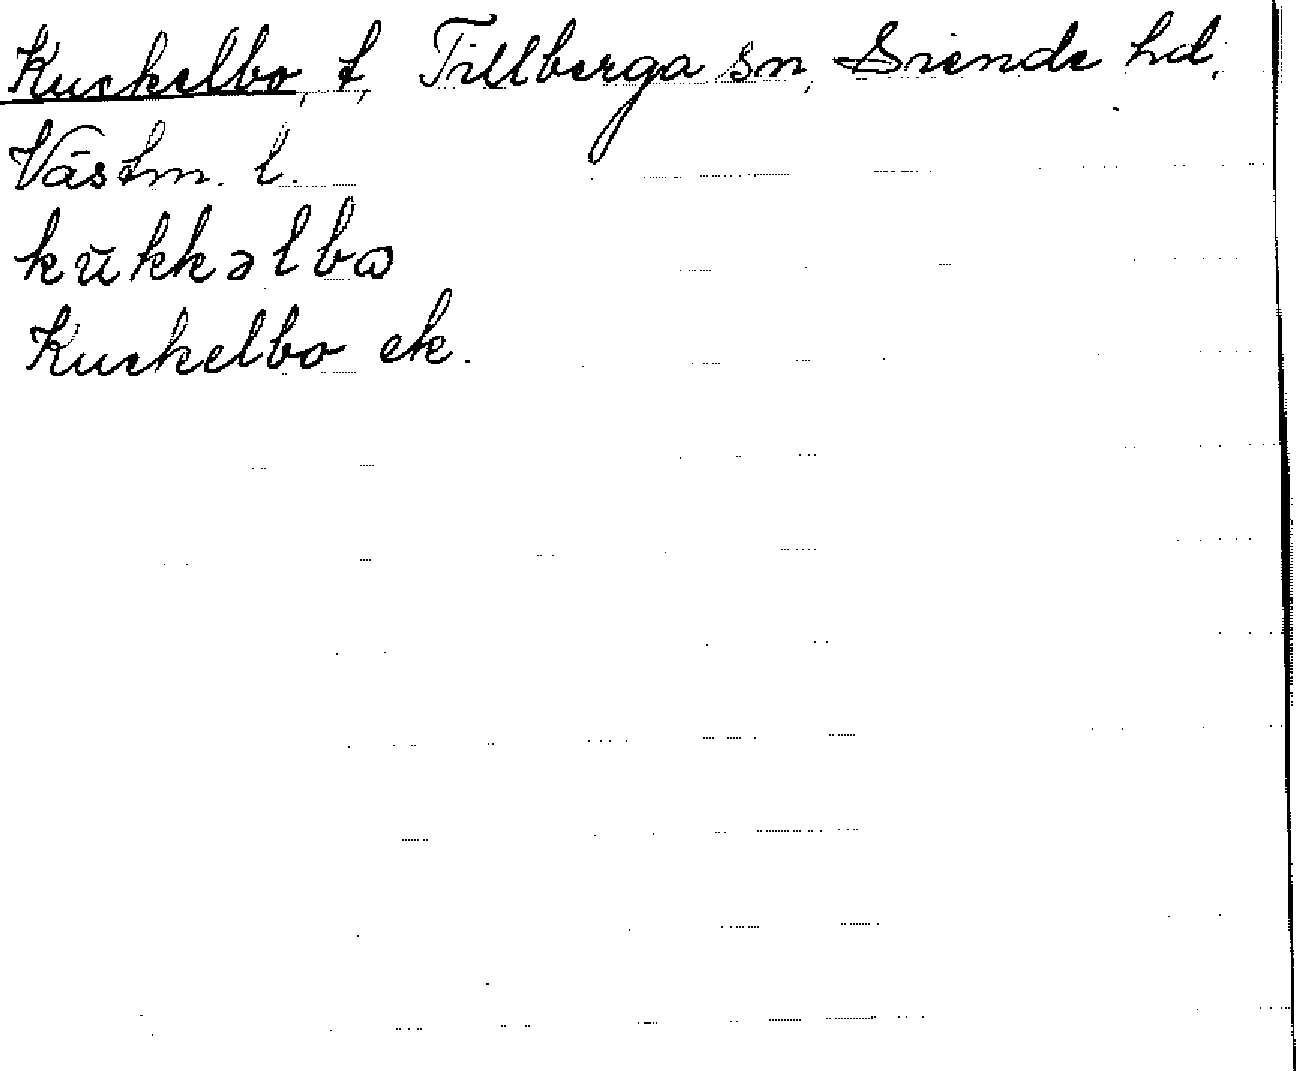 Kuckelbo, t, Tillberga sn, Siende hd,
Västm. l.
kŭkkəlbꙍ
Kuckelbo ek.